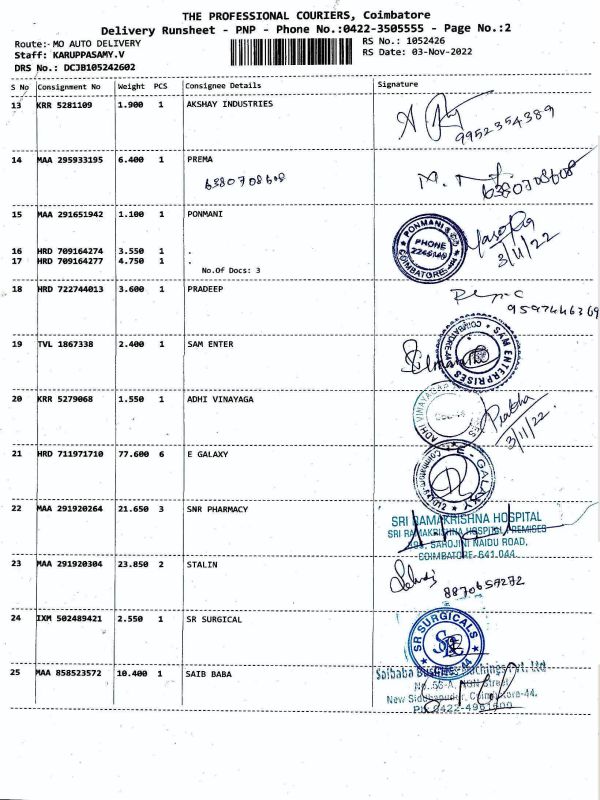 THE PROFESSIONAL COURIERS, Coimbatore
Delivery Runsheet - PNP - Phone No.:0422-3505555 - Page No.:2
Route:- MO AUTO DELIVERY
RS No.: 1052426
Staff: KARUPPASAMY.V
RS Date: 03-Nov-2022
DRS No.: DCJB105242602
S No Consignment No Weight PCS Consignee Details Signature
13 KRR 5281109 1.900 1 AKSHAY INDUSTRIES
9952354389
14 MAA 295933195 6.400 1 PREMA
6380708608
6380708608
15 MAA 291651942 1.100 1 PONMANI
PONMANI
PHONE
COIMBATORE
3/11/22
16 HRD 709164274 3.550 1 .
17 HRD 709164277 4.750 1 .
No.Of Docs: 3
18 HRD 722744013 3.600 1 PRADEEP
19 TVL 1867338 2.400 1 SAM ENTER
SAM ENTERPRISES
COIMBATORE-44
20 KRR 5279068 1.550 1 ADHI VINAYAGA
ADHI VINAYAGA
Prabha
3/11/22.
21 HRD 711971710 77.600 6 E GALAXY
E - GALAXY
22 MAA 291920264 21.650 3 SNR PHARMACY
SRI RAMAKRISHNA HOSPITAL
SRI RAMAKRISHNA HOSPITAL PREMISES
395, SAROJINI NAIDU ROAD,
COIMBATORE-641 044.
23 MAA 291920304 23.850 2 STALIN
8870659272
24 IXM 502489421 2.550 1 SR SURGICAL
SR SURGICALS
25 MAA 858523572 10.400 1 SAIB BABA
Saibaba Pvt. Ltd
No. 56-A, NGN Street
New Siddhapudur, Coimbatore-44.